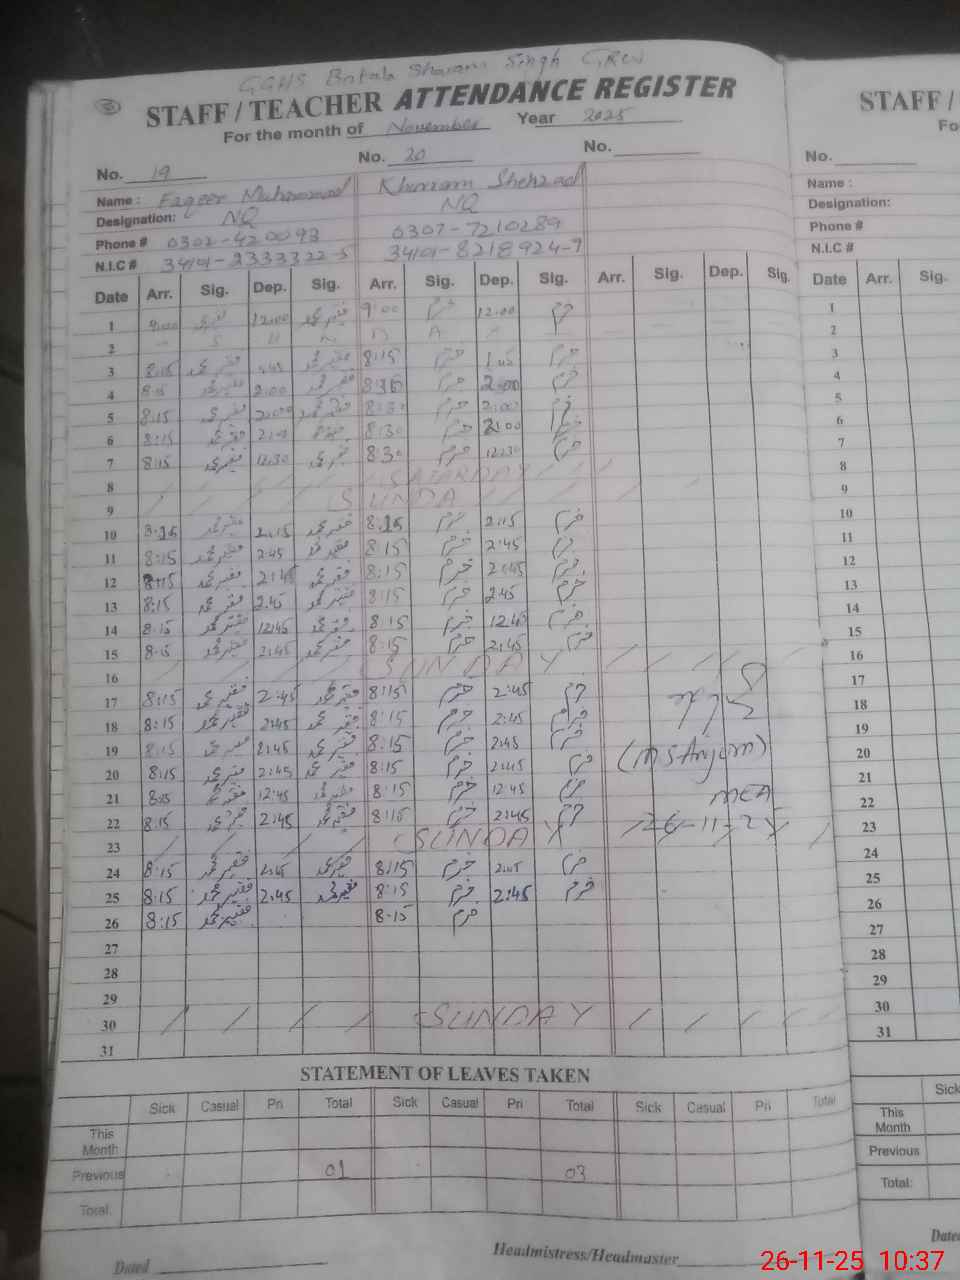 GGHS Botala Sharam Singh GRW
3
STAFF / TEACHER ATTENDANCE REGISTER
For the month of November Year 2025
No. 19 No. 20 No.
Name : Faqeer Muhammad Khurram Shehzad
Designation: NQ NQ
Phone # 0302-420093 0307-7210289
N.I.C # 34101-2333322-5 34101-8218924-7
Date Arr. Sig. Dep. Sig. Arr. Sig. Dep. Sig. Arr. Sig. Dep. Sig.
1 9:00 12:00 فقیر محمد 9:00 خرم 12:00 خرم
2
3 8:15 فقیر محمد فقیر محمد 8:15 خرم 1:45 خرم
4 فقیر محمد 2:00 فقیر محمد خرم 2:00 خرم
5 8:15 فقیر محمد 2:00 فقیر محمد 8:30 خرم 2:00 خرم
6 8:15 فقیر محمد 2:00 8:30 خرم 2:00 خرم
7 8:15 فقیر محمد 12:30 فقیر محمد 8:30 خرم 12:30 خرم
8 / / / / SATARDAY / / /
9 / / / / SUNDAY / / / /
10 فقیر محمد 2:15 فقیر محمد 8:15 خرم 2:15 خرم
11 8:15 فقیر محمد 2:45 فقیر محمد 8:15 خرم 2:45 خرم
12 8:15 فقیر محمد 2:45 فقیر محمد 8:15 خرم 2:45 خرم
13 8:15 فقیر محمد 2:45 فقیر محمد 8:15 خرم 2:45 خرم
14 8:15 فقیر محمد 12:45 فقیر محمد 8:15 خرم 12:45 خرم
15 8:15 فقیر محمد 2:45 فقیر محمد 8:15 خرم 2:45 خرم
16 / / / / SUNDAY / / / /
17 8:15 فقیر محمد 2:45 فقیر محمد 8:15 خرم 2:45 خرم
18 8:15 فقیر محمد 2:45 فقیر محمد 8:15 خرم 2:45 خرم
19 8:15 فقیر محمد 2:45 فقیر محمد 8:15 خرم 2:45 خرم (MS Anjum)
20 8:15 فقیر محمد 2:45 فقیر محمد 8:15 خرم 2:45 خرم
21 8:15 فقیر محمد 12:45 فقیر محمد 8:15 خرم 12:45 خرم MEA
22 8:15 فقیر محمد 2:45 فقیر محمد 8:15 خرم 2:45 خرم 26-11-25
23 / / / / SUNDAY / /
24 8:15 فقیر محمد 2:45 فقیر محمد 8:15 خرم 2:45 خرم
25 8:15 فقیر محمد 2:45 فقیر محمد 8:15 خرم 2:45 خرم
26 8:15 فقیر محمد 8:15 خرم
27
28
29
30 / / / / SUNDAY / / / /
31
STATEMENT OF LEAVES TAKEN
Sick Casual Pri Total Sick Casual Pri Total Sick Casual Pri Total
This
Month
Previous 01 03
Total.
Dated Headmistress/Headmaster
STAFF /
Fo
No.
Name :
Designation:
Phone #
N.I.C #
Date Arr. Sig.
1
2
3
4
5
6
7
8
9
10
11
12
13
14
15
16
17
18
19
20
21
22
23
24
25
26
27
28
29
30
31
Sick
This
Month
Previous
Total:
Dated
26-11-25 10:37